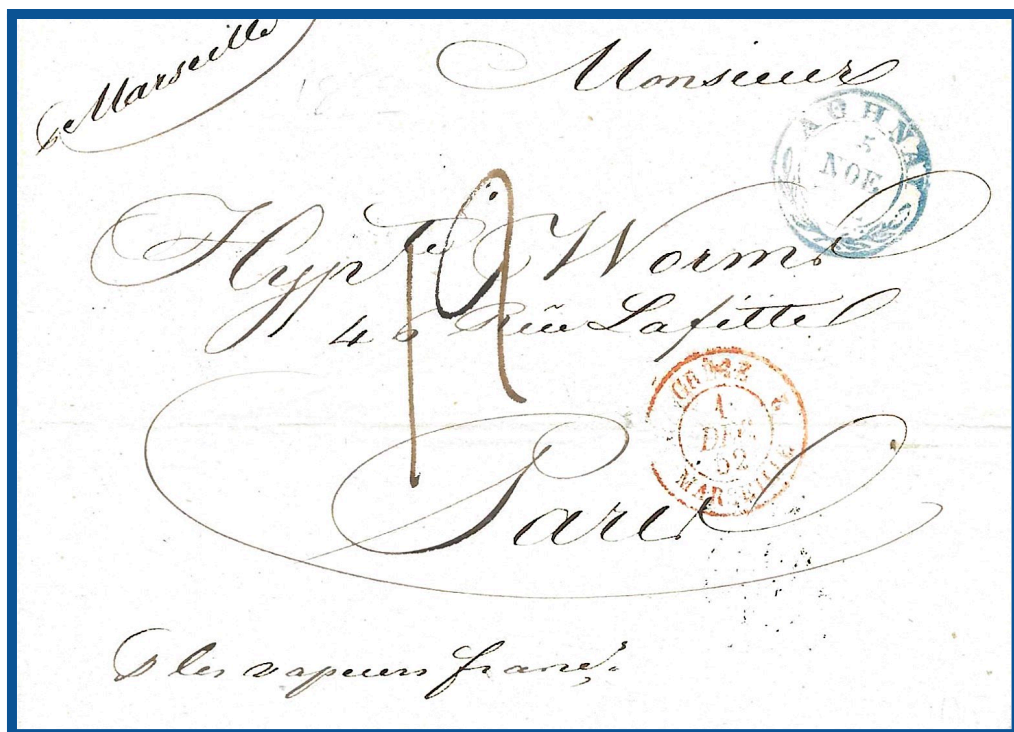 p Marseille
Monsieur
ΑΘΗΝΑΙ
5
ΝΟΕ
Hypte Worms
46 Rüe Lafitte
Paris
1
DEC
52
MARSEILLE
p les vapeurs franc.s